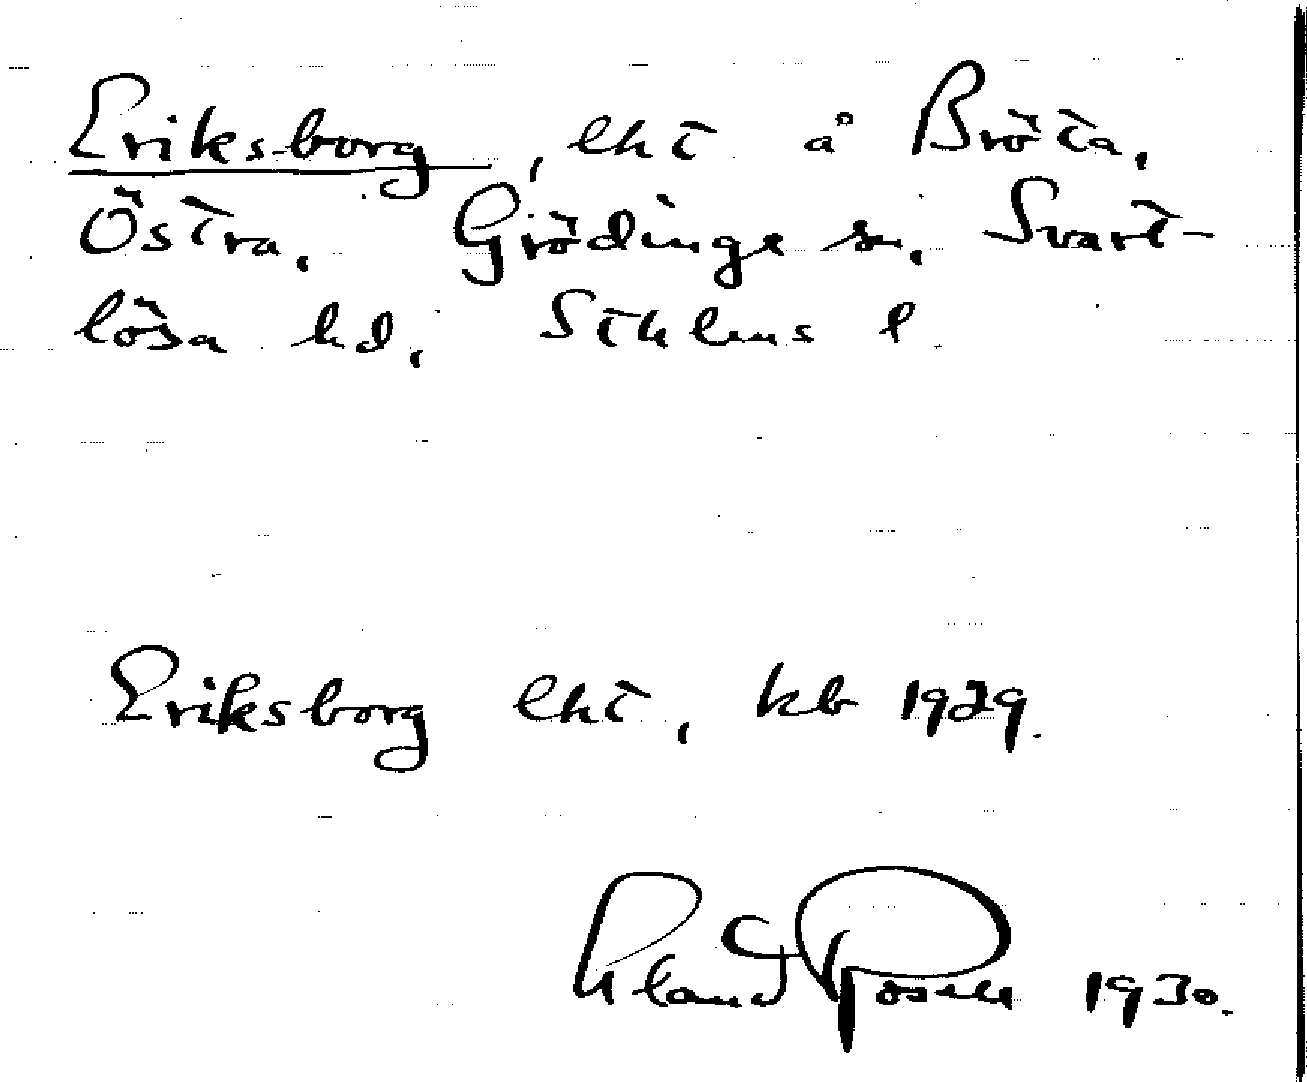 Eriksborg, lht å Bröta,
Östra, Grödinge sn, Svart-
lösa hd, Sthlms l
Eriksborg lht, kb 1929.
Rosell 1930.